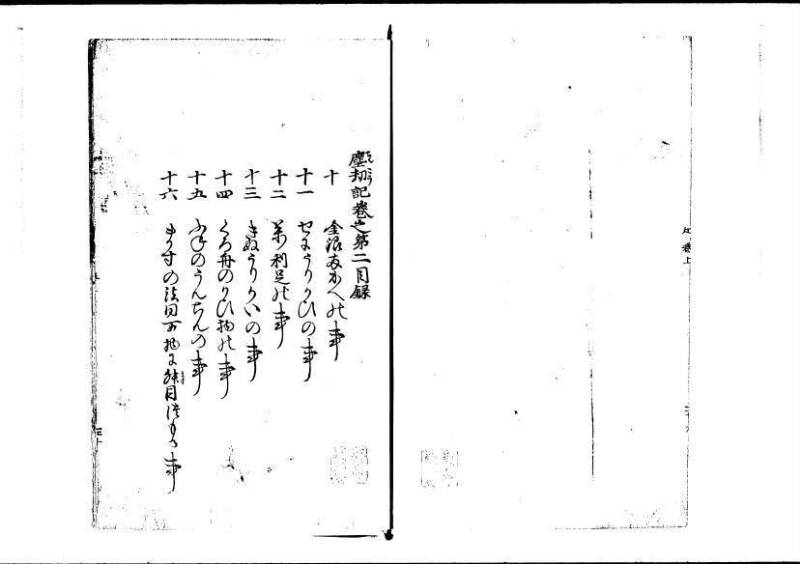 塵劫記巻之第二目録
十 金銀両かへの事
十一 せにうりかひの事
十二 萬利足の事
十三 きぬうりかいの事
十四 くろ舟のかひ物の事
十五 ふねのうんちんの事
十六 ます寸の法同万物に目つもる事